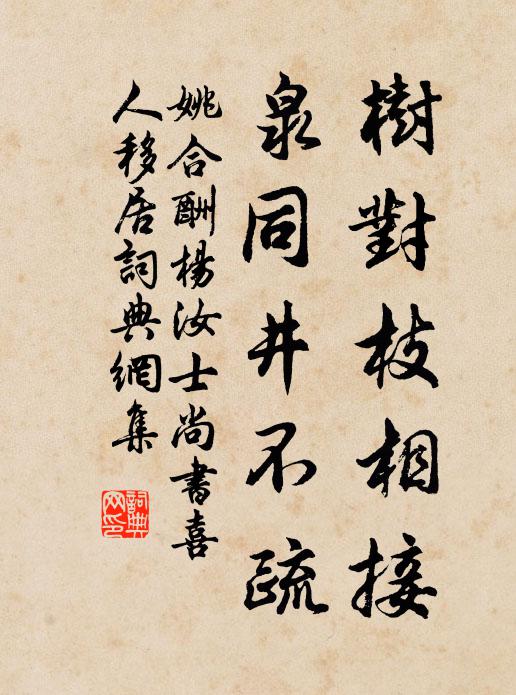 樹對枝相接
泉同井不疏
姚合酬楊汝士尚書喜
人移居詞典網集
詞典
网印